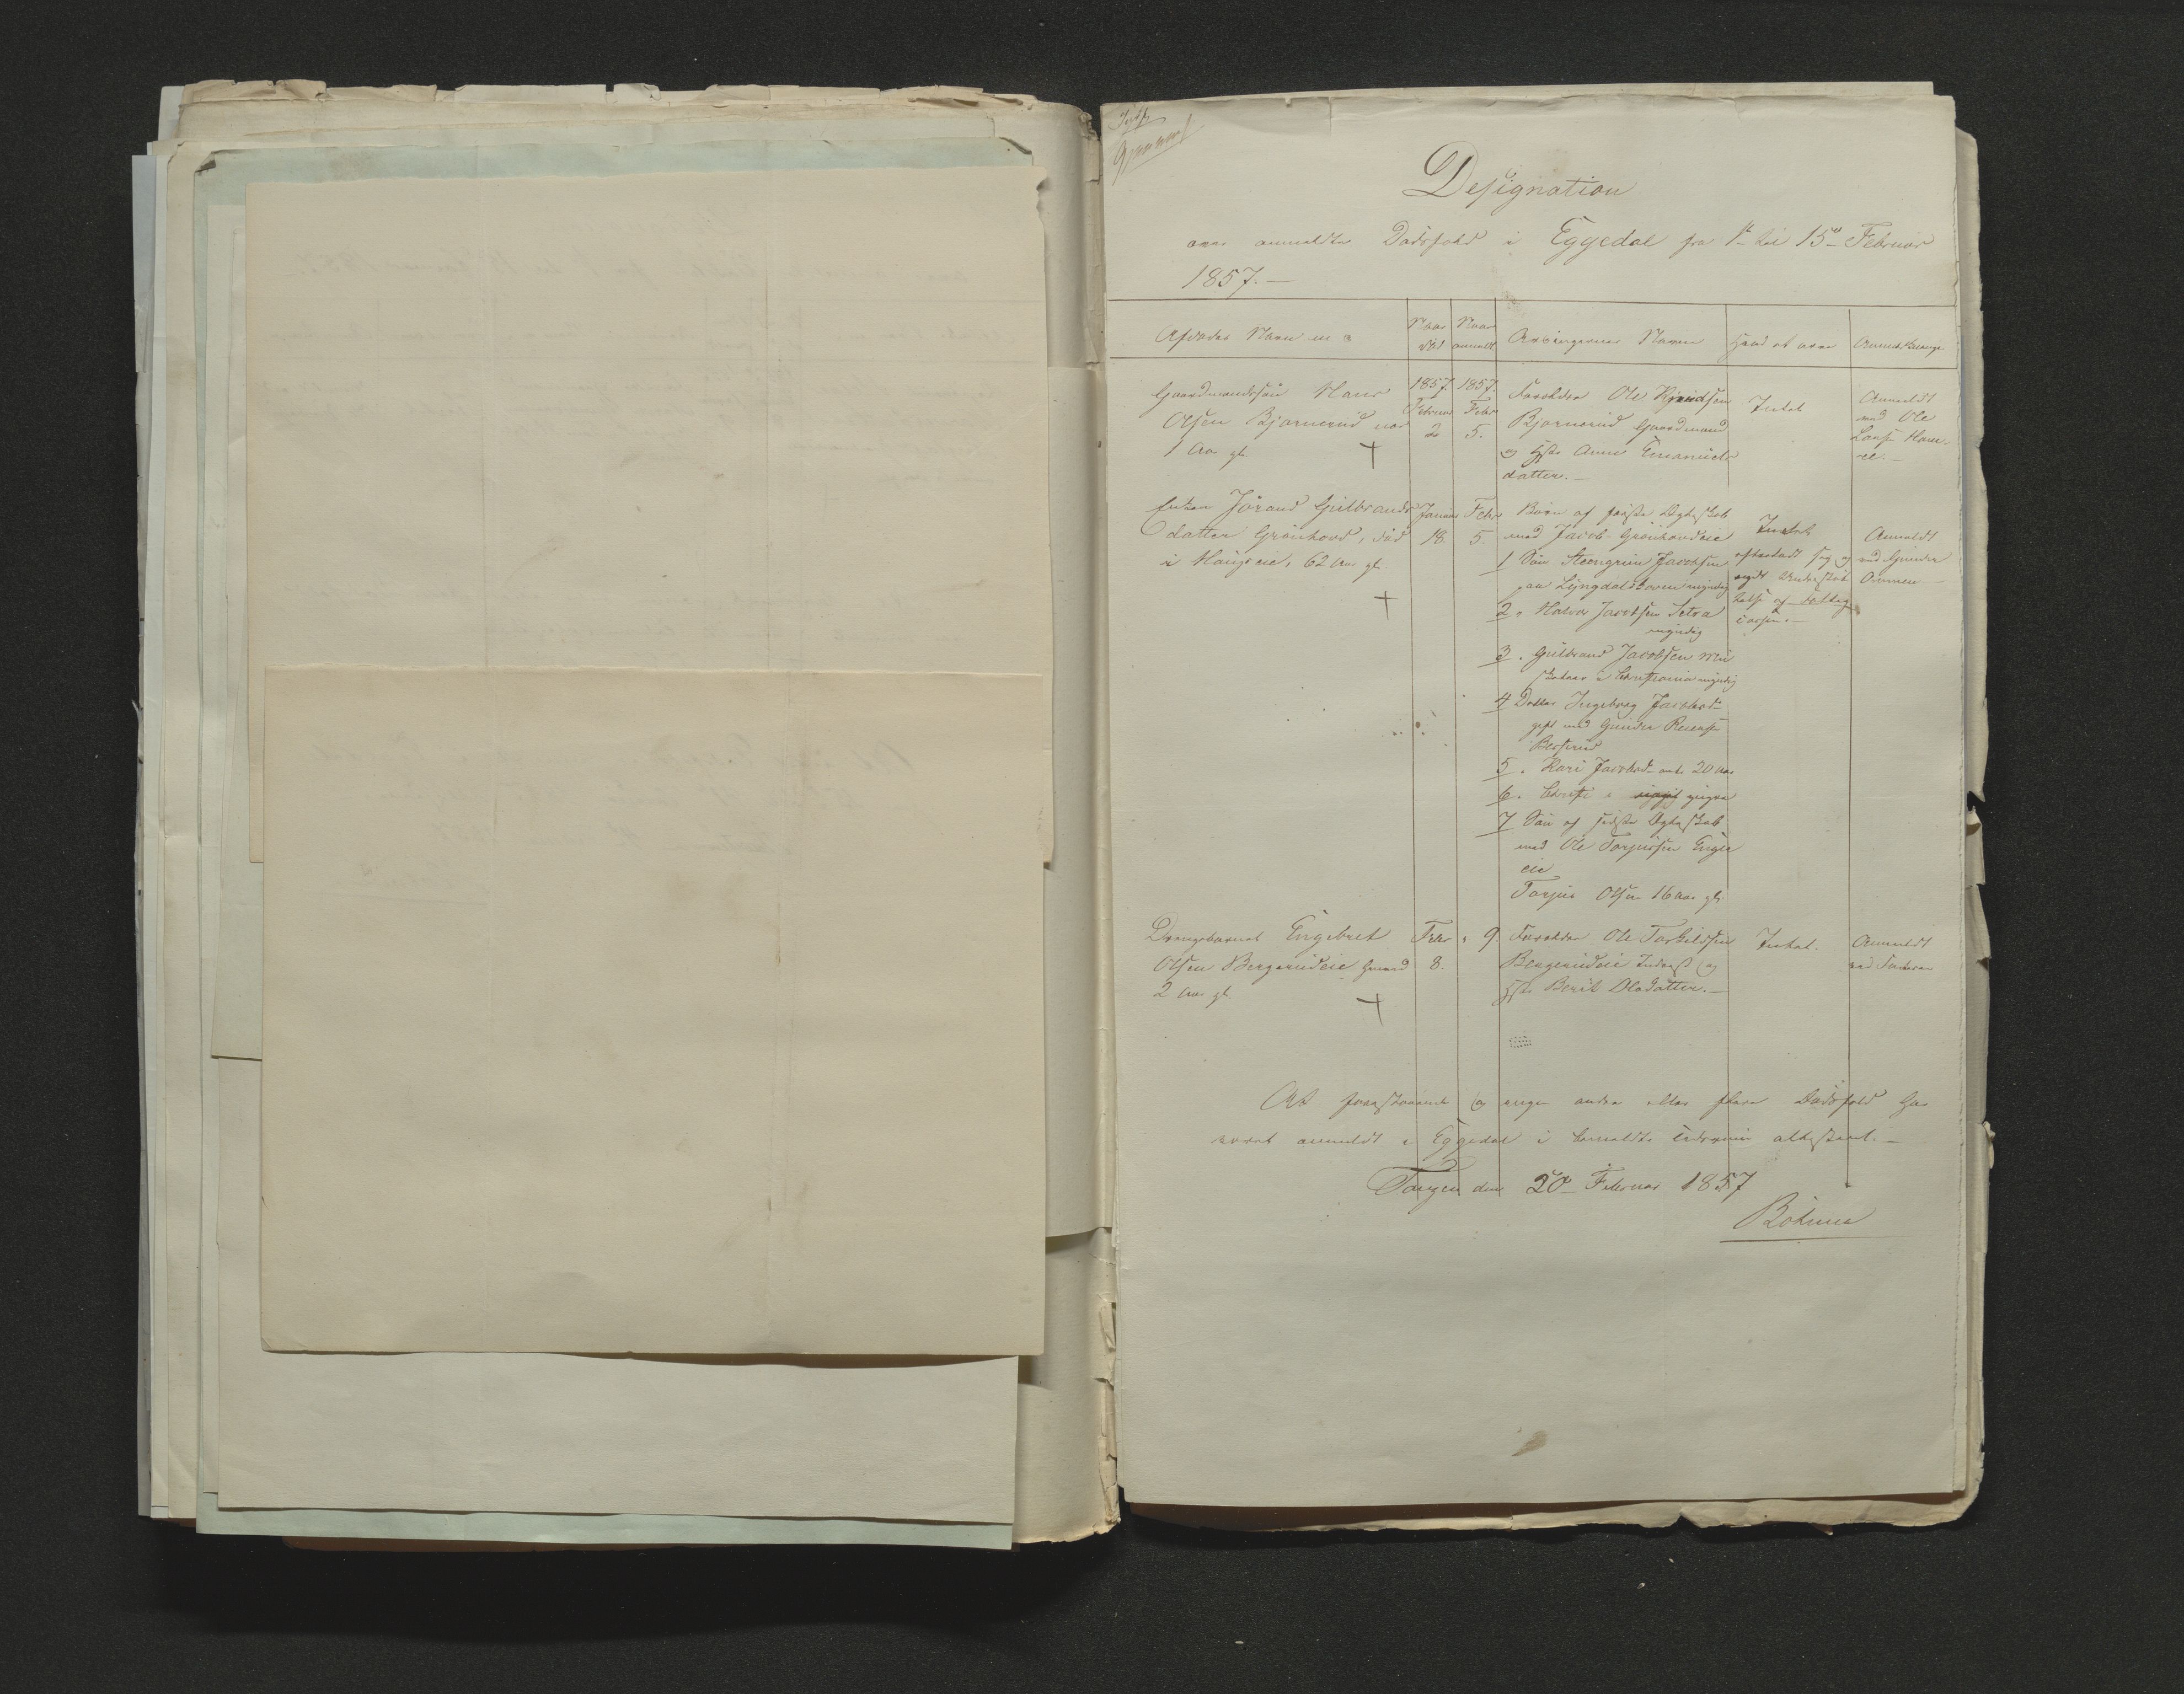 Designation
over anmeldte Dødsfald i Eggedal fra 1te til 15de Februar
1857.—
Afdødes Navn m. v.
Naar død
Naar anmeldt
Arvingernes Navne
Hvad at arve
Gaardmandssøn Hans
Olsen Bjørnerud
1 Aar gl.
1857 Februar 2
1857 Febr 5.
Forældre Ole Knudsen
Bjørnerud Gaardmand
og Hstr Anne Emanuels
datter.—
Intet
Anmeldt
ved Ole
Larss.
Enken Jørand Gulbrands
datter Grønhovd, død
i Haugseie, 62 Aar gl.
Januar 18
Febr 5.
Børn af første Ægteskab
med Jacob Grønhovdeie
1 Søn Steengrim Jacobsen
paa Lyngdalskoven myndig
2 " Halvor Jacobsen Setra
myndig
3 " Gulbrand Jacobsen
i Christiania myndig
4 Datter Ingeborg Jacobsd.
gift med Gunder
5 " Kari Jacobsd. 20 Aar
6 "
7 Søn af sidste Ægteskab
med Ole Torjussen
eie
Torjus Olsen 16 Aar gl.
Intet
efterladt sig og
nydt Understøt
telse af Fattig
cassen.—
Anmeldt
ved Gunder
Drengebarnet Engebret
Olsen Bergerudeie
2 Aar gl.
Febr 8.
" 9
Forældre Ole Torkildsen
Bergerudeie Inderst og
Hstr Berit Olsdatter.—
Intet.
Anmeldt
ved Faderen
At foranstaaende og ingen andre eller flere Dødsfald har
været anmeldt i Eggedal i bemeldte Tidsrum attesteres.—
Tangen den 20de Februar 1857